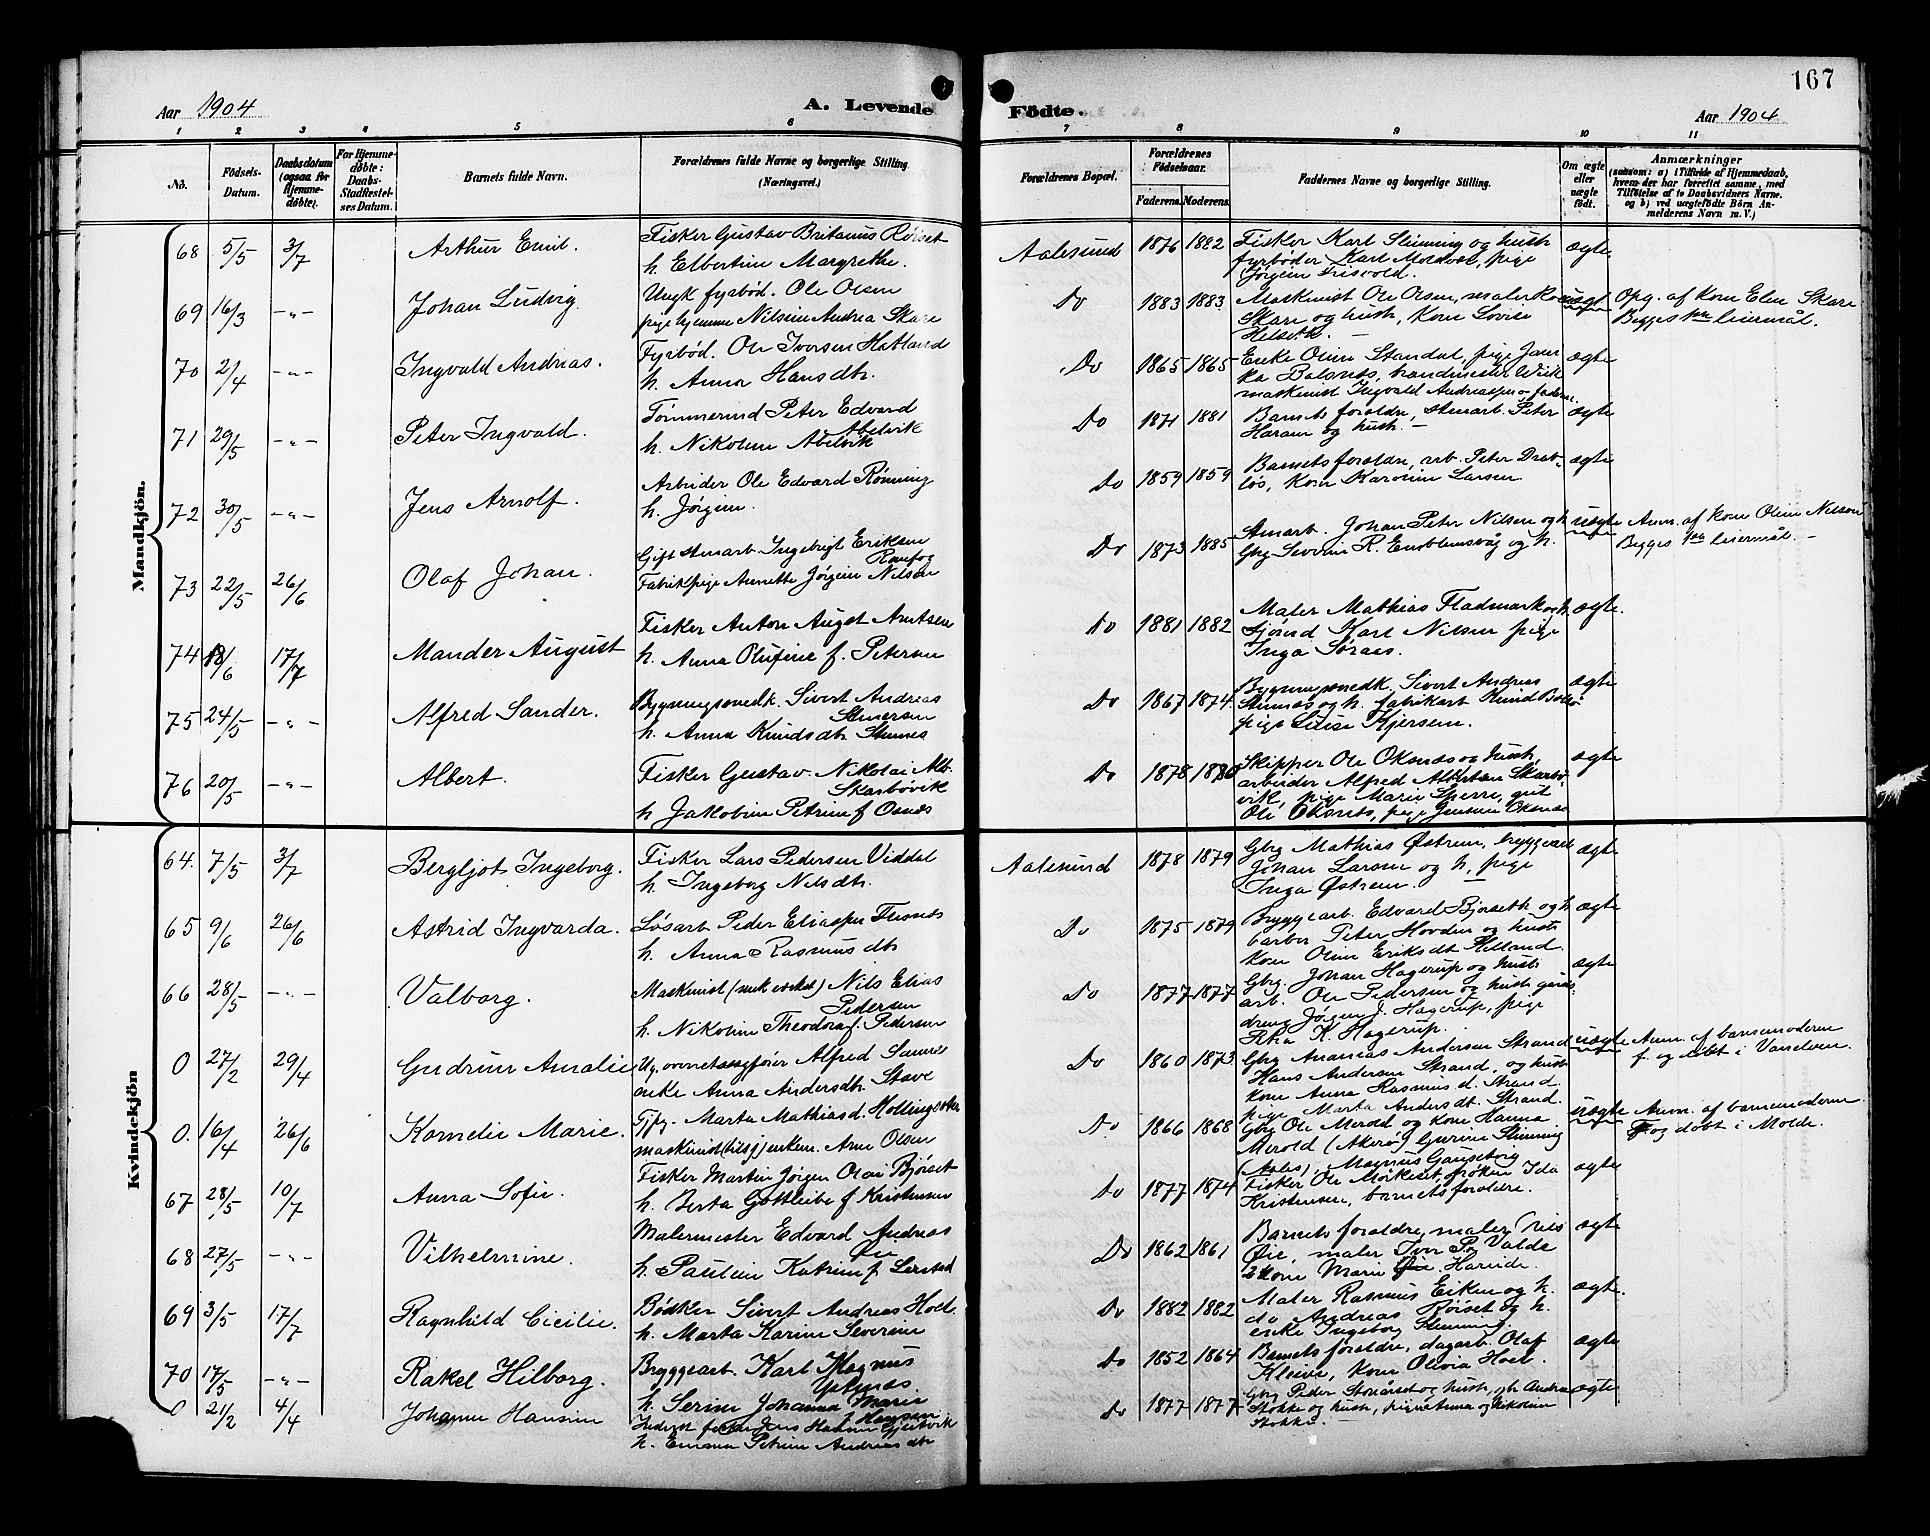 167
Aar 1904
A. Levende Födte.
Aar 1904
1 2 3 4 5 6 7 8 9 10 11
No.
Födsels-Datum.
Daabsdatum (ogsaa for Hjemmedöbte).
For Hjemmedöbte: Daabs-Stadfæstelses Datum.
Barnets fulde Navn.
Forældrenes fulde Navne og borgerlige Stilling. (Næringsvei.)
Forældrenes Bopæl.
Forældrenes Födselsaar.
Faderens. Moderens.
Faddernes Navne og borgerlige Stilling.
Om ægte eller uægte födt.
Anmærkninger
(saasom: a) i Tilfælde af Hjemmedaab, hvem der har forrettet samme, med Tilföielse af to Daabsvidners Navne, og b) ved uægtefödte Börn Anmelderens Navn m. V.)
Mandkjön.
68 5/5 3/7 Arthur Emil. Fisker Gustav Britanus Rörset
h. Elbertine Margrethe.
Aalesund 1876 1882 Fisker Karl Slinning og hustr.
fyrbøder Karl Moldvær, pige
Jørgine Frisvold.
ægte
69 16/3 -"- Johan Ludvig Ungk fyrbød. Ole Olsen
pige hjemme Nilsine Andrea Skare
Do 1883 1883 Maskinist Ole Olsen, maler
Skare og hustr, Kone Lovise
Helseth.
uægte Opg. af kone Elen Skare
Begges 1ste leiermål.
70 2/4 -"- Ingvald Andreas. Fyrbød. Ole Iversen Hatland
h. Anna Hansdtr.
Do 1865 1865 Enke Oline Standal, pige
maskinist Ingvald Andreassen og faderen.
ægte
71 29/5 -"- Peter Ingvald. Tømmermd Peter Edvard
Abelvik
h. Nikoline Abelvik
Do 1871 1881 Barnets foreldre, stenarb. Peter
Haram og hustr. -
ægte
72 30/5 -"- Jens Arnolf. Arbeider Ole Edvard Rønning
h. Jørgine.
Do 1859 1859 Barnets foreldre, arb. Peter Drab-
løs, kone Karoline Larsen
ægte
73 22/5 26/6 Olaf Johan. Gift stenarb. Ingebrigt Eriksen
Fabrikpige Annette Jørgine Nilsen
Do 1873 1885 Stenarb. Johan Peter Nilsen og h.
Gbrg Severin R. Emblemsvåg og h.
uægte Anm. af kone Oline Nilsen
Begges 1ste leiermål. -
74 18/6 17/7 Mander August Fisker Anton August Arntsen
h. Anna Olufine f. Petersen
Do 1881 1882 Maler Mathias Fladmark og h.
sjømd Karl Nilsen pige
Inga Søraas.
ægte.
75 24/5 -"- Alfred Sander. Bygningssnedk. Sivert Andreas
h. Anna Knudsdtr
Do 1867 1874 Bygningssnedk. Sivert Andreas
og h. fabrikarb Knud
pige Luise Kjersem.
ægte
76 20/5 -"- Albert. Fisker Gustav Nikolai Alb.
Skarbøvik
h. Jakobine Petrine f Osnes
Do 1878 1880 Skipper Ole Oksnes og hustr,
arbeider Alfred Albertsen Skarbø-
vik, pige Marie Sperre, gut
Ole Oksnes, pige Jensine Oksnes
ægte
Kvindekjön
64. 7/5 3/7 Bergljot Ingeborg. Fisker Lars Pedersen Viddal
h. Ingeborg Nilsdtr.
Aalesund 1878 1879 Gbrg Mathias Østrem, bryggearb
Johan Larsen og h, pige
Inga Østrem.
ægte
65 9/6 26/6 Astrid Ingvarda. Løsarb Peder Eliassen Fusnes
h. Anna Rasmusdtr
Do 1875 1879 Bryggearb. Edvard Bjørseth og h
barber Peter Hovden og hustr
kone Oline Eriksdt Helland
ægte
66 28/5 -"- Valborg. Maskinist Nils Elias
Pedersen
h. Nikoline Theodora f. Pedersen
Do 1877 1877 Gbrg. Johan Hagerup og hustr
arb. Ole Pedersen og hustr gårds-
dreng Jørgen J. Hagerup, pige
K. Hagerup.
ægte
0 27/2 29/4 Gudrun Amalie Alfred Sannes
enke Anna Andersdtr Stave
Do 1860 1873 Gbrg Ananias Andersen Strand
Hans Andersen Strand, og hustr
kone Anna Rasmusd. Strand
pige Marta Andersdt. Strand.
uægte Anm. af barnemoderen
f. og døbt i Vanelven.
0. 16/4 26/6 Kornelie Marie. Marta Mathiasd. Hollingsæter
Do 1866 1868 Gbrg Ole Merold og kone Hanna
Merold (Akerø) Gurine Slinning
(Aales), Magnus
uægte Anm. af barnemoderen
F og døbt i Molde.
67 28/5 10/7 Anna Sofie. Fisker Martin Jørgen Olai Bjørset
h. Berta Gottliebe f Kristensen
Do 1877 1874 Fisker Ole Mørkeset, frøken Ida
Kristensen, barnets foreldre.
ægte
68 27/5 -"- Vilhelmine. Malermester Edvard Andreas
Øie
h. Pauline Katrine f. Lerstad
Do 1862 1861 Barnets foreldre, maler Nils
Øie, maler Iver P. Valde
kone Marie Hareide.
ægte
69 3/5 17/7 Ragnhild Cicilie. Bødker Sivert Andreas Hoel.
h. Marta Karine Severine
Do 1882 1882 Maler Rasmus Eiken og h.
do Andreas Røiset og h.
enke Ingeborg Slinning.
ægte.
70 17/5 -"- Rakel Hilborg. Bryggearb. Karl Magnus
h. Serine Johanna Marie
f. Hansen
Do 1852 1864 Barnets foreldre, dagarb. Olaf
Kleive, kone Olivia Hoel.
ægte
0 21/2 4/4 Johanne Hansine
h. Emma Petrine Andreasdtr
Do 1877 1877 Gbrg Peder og hustr, gbr Andreas
Stokke og hustr, pigerne Anna og Nikoline
Stokke. -
ægte